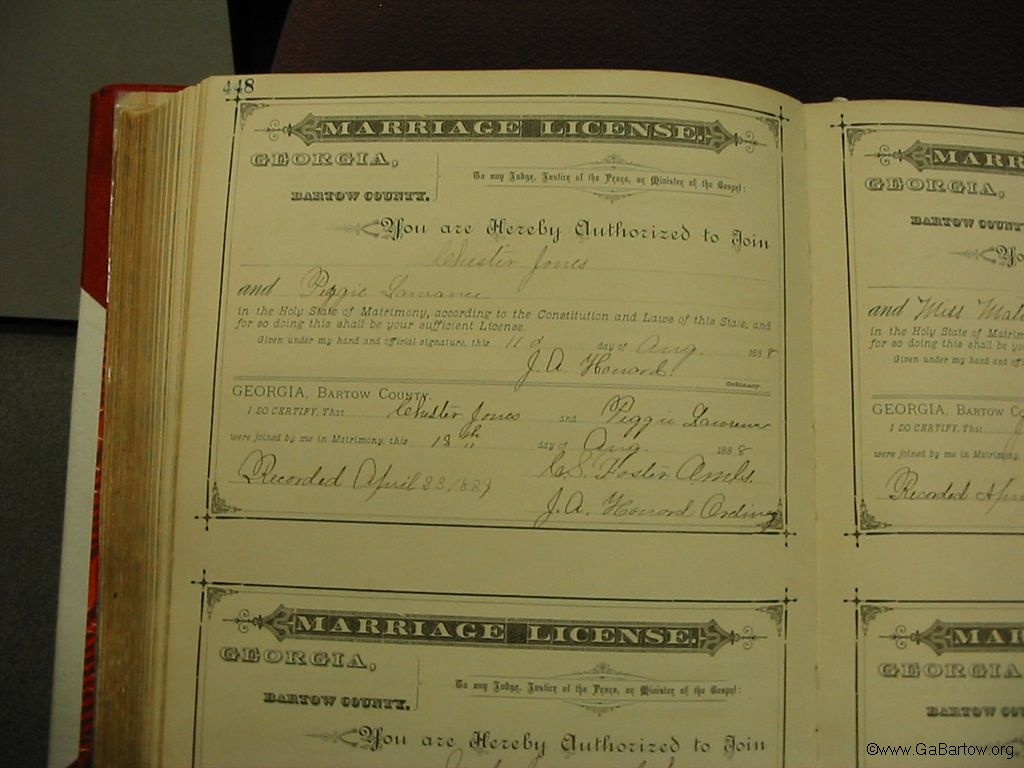 448
MARRIAGE LICENSE.
GEORGIA,
BARTOW COUNTY.
To any Judge, Justice of the Peace, or Minister of the Gospel:
You are Hereby Authorized to Join
Chester Jones
and Peggie Lawrance
in the Holy State of Matrimony, according to the Constitution and Laws of this State, and
for so doing this shall be your sufficient License.
Given under my hand and official signature, this 11 day of Aug. 1888
J. A. Howard
Ordinary.
GEORGIA, BARTOW COUNTY.
I DO CERTIFY, That Chester Jones and Peggie Lawrence
were joined by me in Matrimony, this 18th day of Aug. 1888
C. S. Foster
Recorded April 23 1889
J. A. Howard Ordinary
MARRIAGE LICENSE.
GEORGIA,
BARTOW COUNTY.
To any Judge, Justice of the Peace, or Minister of the Gospel:
You are Hereby Authorized to Join
MARR
GEORGIA,
BARTOW COUNTY
Yo
and Miss
in the Holy State of Matrim
for so doing this shall be yo
Given under my hand and of
GEORGIA, BARTOW CO
I DO CERTIFY, That
were joined by me in Matrimony,
Recorded Apri
MAR
GEORGIA
BARTOW COUN
©www.GaBartow.org